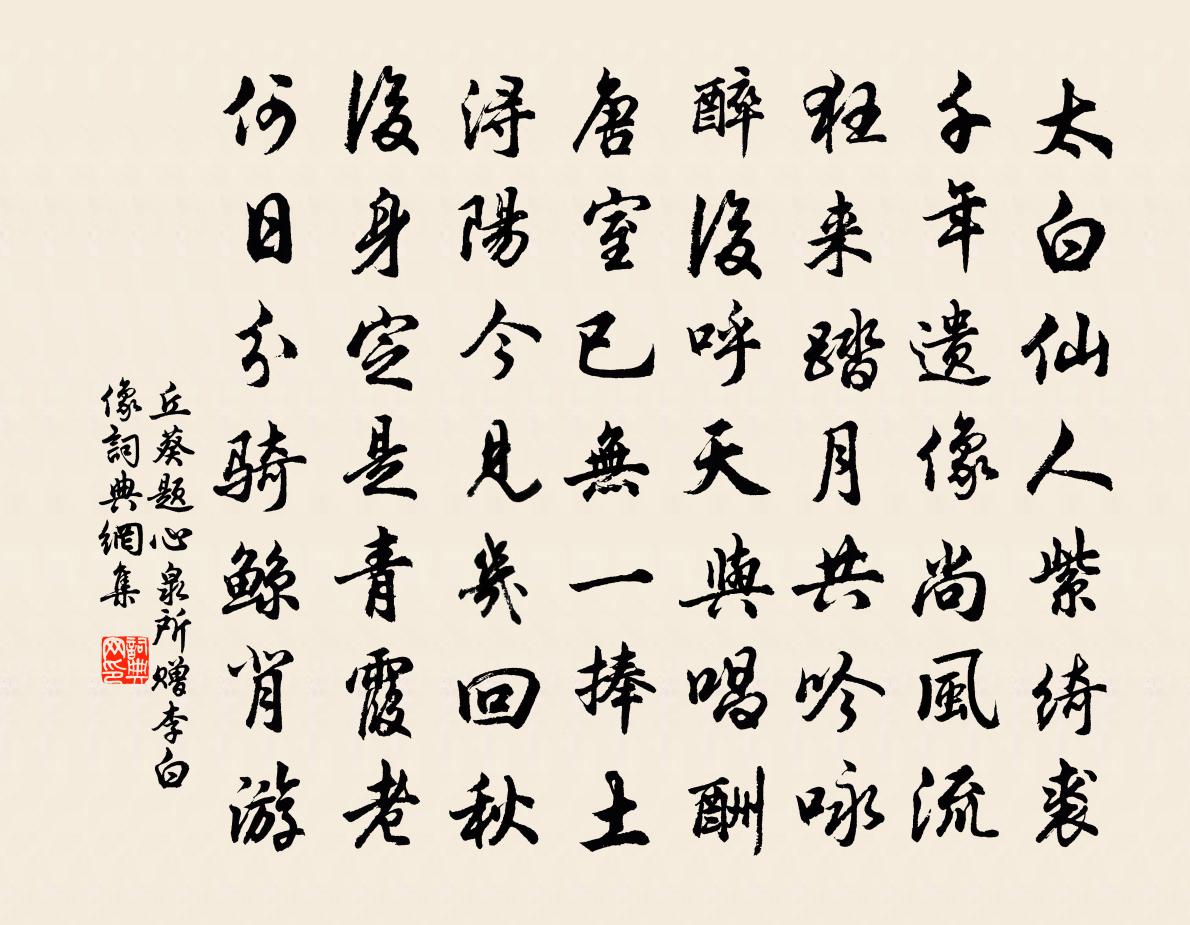 太白仙人紫綺裘
千年遺像尚風流
狂来踏月共吟咏
醉後呼天與唱酬
唐室已無一捧土
潯陽今見幾回秋
後身定是青霞老
何日分骑鲸背游
丘葵题心泉所赠李白
像詞典網集
詞典网印